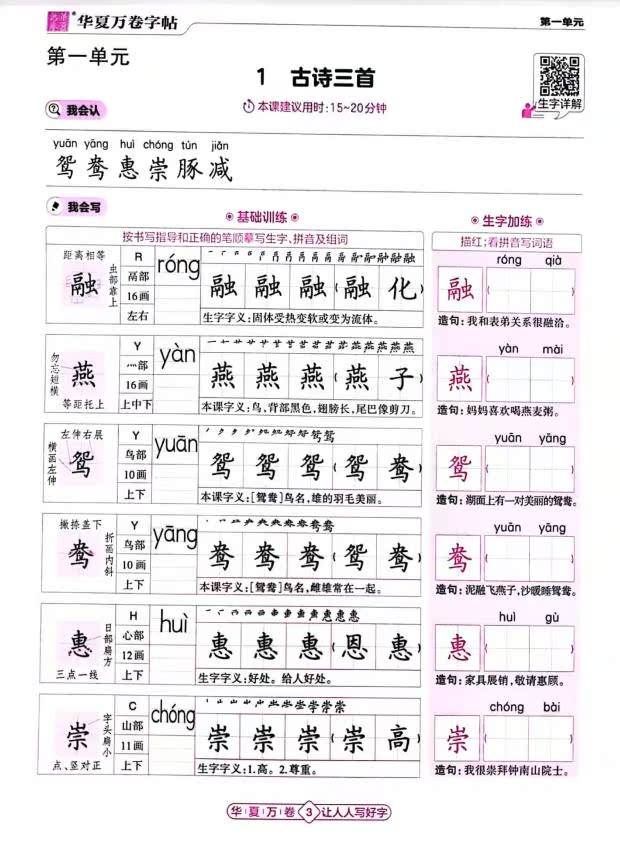 华夏万卷字帖
第一单元
第一单元
1 古诗三首
本课建议用时:15~20分钟
生字详解
我会认
yuān yāng huì chóng tún jiǎn
鸳鸯惠崇豚减
我会写
基础训练
生字加练
按书写指导和正确的笔顺摹写生字、拼音及组词
描红;看拼音写词语
距离相等
虫部靠上
融
R
鬲部
16画
左右
róng
融融融(融化)
生字字义:固体受热变软或变为流体。
róng qià
融( )
造句:我和表弟关系很融洽。
勿忘短横
燕
等距托上
Y
灬部
16画
上中下
yàn
燕燕燕(燕子)
本课字义:鸟,背部黑色,翅膀长,尾巴像剪刀。
yàn mài
燕( )
造句:妈妈喜欢喝燕麦粥。
左伸右展
横画左伸
鸳
Y
鸟部
10画
上下
yuān
鸳鸳鸳(鸳鸯)
本课字义:[鸳鸯]鸟名,雄的羽毛美丽。
yuān yāng
鸳( )
造句:湖面上有一对美丽的鸳鸯。
撇捺盖下
折画内斜
鸯
Y
鸟部
10画
上下
yāng
鸯鸯鸯(鸳鸯)
本课字义:[鸳鸯]鸟名,雌雄常在一起。
yuān yāng
鸯( )
造句:泥融飞燕子,沙暖睡鸳鸯。
日部扁方
惠
三点一线
H
心部
12画
上下
huì
惠惠惠(恩惠)
生字字义:好处。给人好处。
huì gù
惠( )
造句:家具展销,敬请惠顾。
字头扁小
崇
点、竖对正
C
山部
11画
上下
chóng
崇崇崇(崇高)
生字字义:1.高。2.尊重。
chóng bài
崇( )
造句:我很崇拜钟南山院士。
华夏万卷 3 让人人写好字